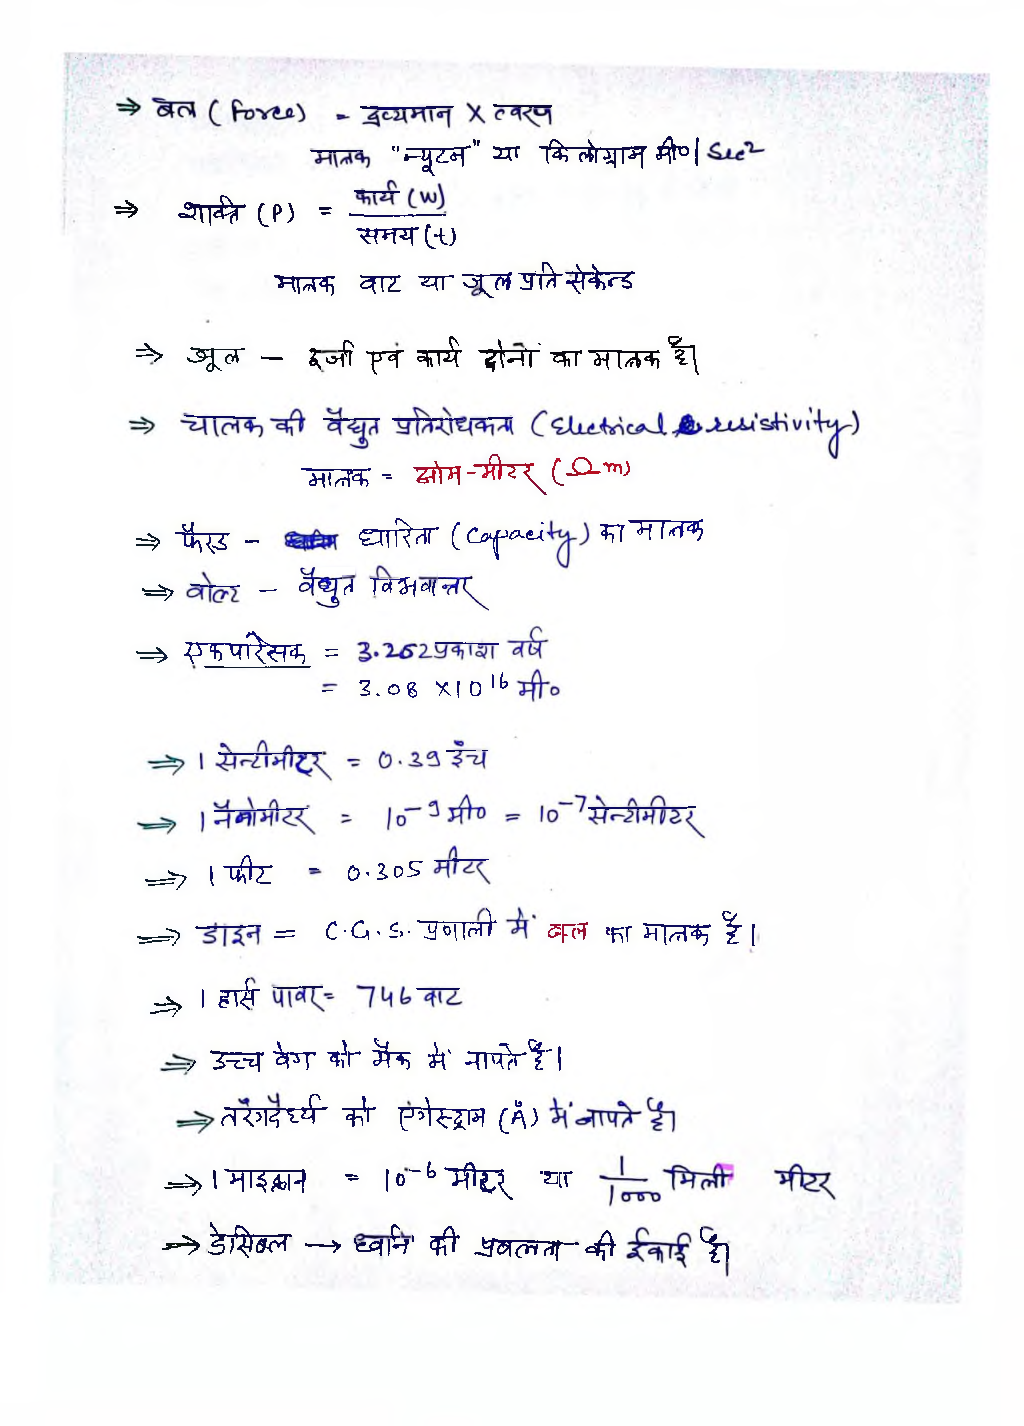 ⇒ बल (Force) = द्रव्यमान X त्वरण
मात्रक "न्यूटन" या किलोग्राम मी०/Sec²
⇒ शक्ति (P) = कार्य (W) / समय (t)
मात्रक वाट या जूल प्रति सेकेन्ड
⇒ जूल – ऊर्जा एवं कार्य दोनों का मात्रक है।
⇒ चालक की वैद्युत प्रतिरोधकता (Electrical resistivity)
मात्रक = ओम-मीटर (Ωm)
⇒ फैरड – धारिता (Capacity) का मात्रक
⇒ वोल्ट – वैद्युत विभवान्तर
⇒ एक पारसेक = 3.262 प्रकाश वर्ष
= 3.08 X10¹⁶ मी०
⇒ 1 सेन्टीमीटर = 0.39 इंच
⇒ 1 नैनोमीटर = 10⁻⁹ मी० = 10⁻⁷ सेन्टीमीटर
⇒ 1 फीट = 0.305 मीटर
⇒ डाइन = C.G.S. प्रणाली में बल का मात्रक है।
⇒ 1 हार्स पावर = 746 वाट
⇒ उच्च वेग को मैक में नापते है।
⇒ तरंगदैर्ध्य को एंगेस्ट्राम (Å) में नापते है।
⇒ 1 माइक्रान = 10⁻⁶ मीटर या 1/1000 मिली मीटर
⇒ डेसिबल → ध्वनि की प्रबलता की ईकाई है।